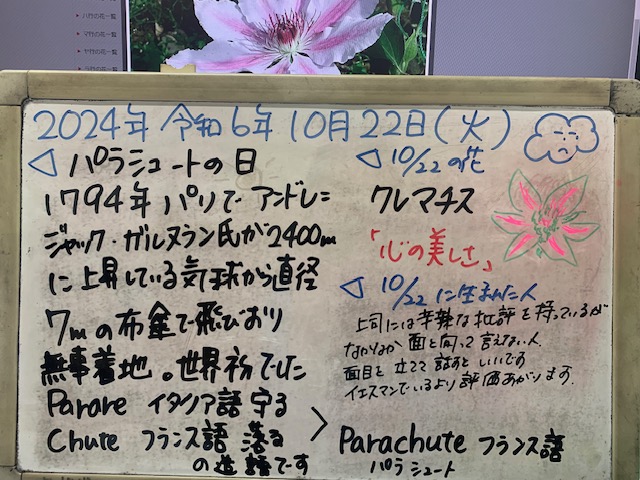 ハ行の花一覧
マ行の花一覧
ヤ行の花一覧
ラ行の花一覧
2024年 令和6年 10月22日(火)
◁ パラシュートの日
1794年 パリで アンドレ=
ジャック・ガルヌラン氏が2400m
に上昇している気球から直径
7mの布傘で飛びおり
無事着地。世界初でした
Parare イタリア語 守る
Chute フランス語 落る
の造語です
>
Parachute フランス語
パラシュート
◁ 10/22 の花
クレマチス
「心の美しさ」
◁ 10/22 に生まれた人
上司には辛辣な批評を持っているが
なかなか面と向って言えない人。
面目を立てて話すといいです
イエスマンでいるより評価あがります。